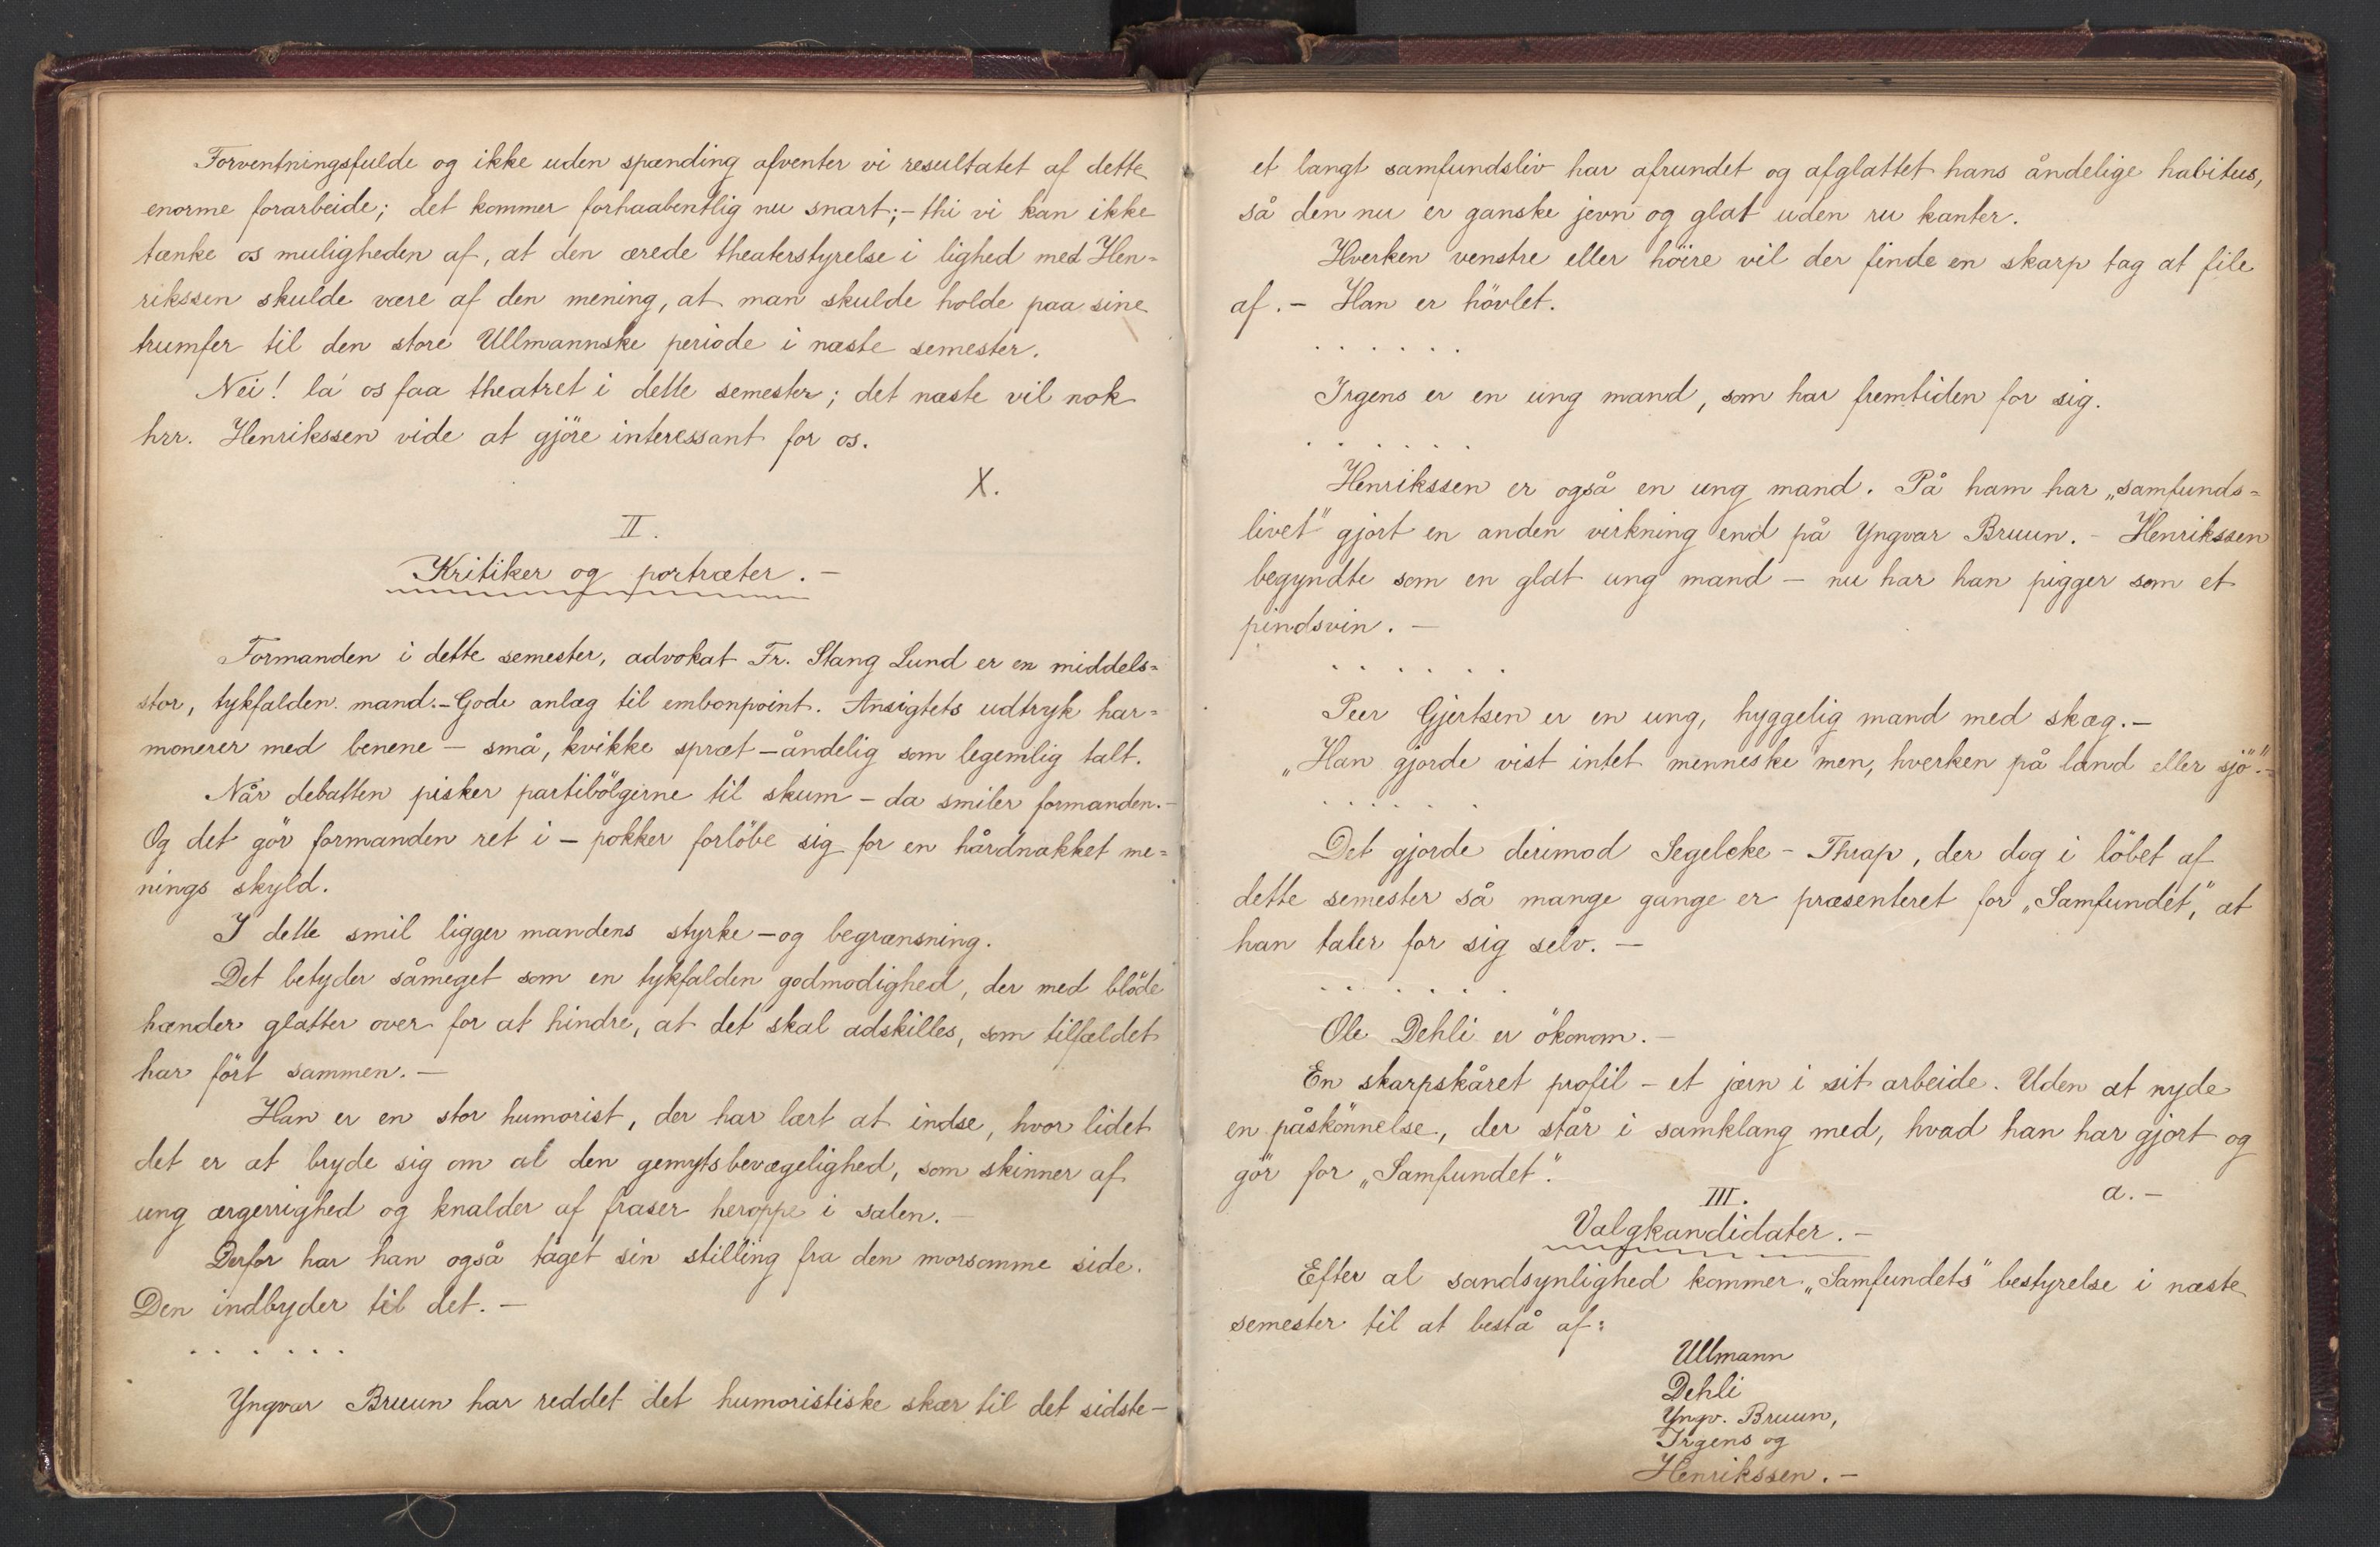 Forventningsfulde og ikke uden spænding afventer vi resultatet af dette
enorme forarbeide; det kommer forhaabentlig nu snart; - thi vi kan ikke
tænke os muligheden af, at den ærede theaterstyrelse i lighed med Hen-
rikssen skulde være af den mening, at man skulde holde paa sine
trumfer til den store Ullmannske periode i næste semester.
Nei! la' os faa theatret i dette semester; det næste vil nok
hrr. Henrikssen vide at gjöre interessant for os.
X.
II.
Kritiker og portræter. -
Formanden i dette semester, advokat Fr. Stang Lund er en middels-
stor, tykfalden mand. - Gode anlæg til embonpoint. Ansigtets udtryk har-
monerer med benene - små, kvikke spræt - åndelig som legemlig talt.
Når debatten pisker partibölgerne til skum - da smiler formanden. -
Og det gör formanden ret i - pokker forlöbe sig for en hårdnakket me-
nings skyld.
I dette smil ligger mandens styrke - og begrænsning.
Det betyder såmeget som en tykfalden godmodighed, der med blöde
hænder glatter over for at hindre, at det skal adskilles, som tilfældet
har fört sammen. -
Han er en stor humorist, der har lært at indse, hvor lidet
det er at bryde sig om al den gemytsbevægelighed, som skinner af
ung ærgerrighed og knalder af fraser heroppe i salen. -
Derfor har han også taget sin stilling fra den morsomme side.
Den indbyder til det. -
. . . . . .
Yngvar Bruun har reddet det humoristiske skær til det sidste -
et langt samfundsliv har afrundet og afglattet hans åndelige habitus,
så den nu er ganske jevn og glat uden ru kanter.
Hverken venstre eller höire vil der finde en skarp tag at file
af. - Han er hövlet.
. . . . . .
Irgens er en ung mand, som har fremtiden for sig.
. . . . . .
Henrikssen er også en ung mand. På ham har „samfunds-
livet" gjort en anden virkning end på Yngvar Bruun. - Henrikssen
begyndte som en glat ung mand - nu har han pigger som et
pindsvin. -
. . . . . .
Peer Gjertsen er en ung, hyggelig mand med skæg. -
„Han gjorde vist intet menneske men, hverken på land eller sjö". -
. . . . . .
Det gjorde derimod Segelcke - Thrap, der dog i löbet af
dette semester så mange gange er præsenteret for „Samfundet", at
han taler for sig selv. -
. . . . . .
Ole Dehli er ökonom. -
En skarpskåret profil - et jærn i sit arbeide. Uden at nyde
en påskönnelse, der står i samklang med, hvad han har gjort og
gör for „Samfundet".
a. -
III.
Valgkandidater. -
Efter al sandsynlighed kommer „Samfundets" bestyrelse i næste
semester til at bestå af:
Ullmann
Dehli
Yngv. Bruun,
Irgens og
Henrikssen. -